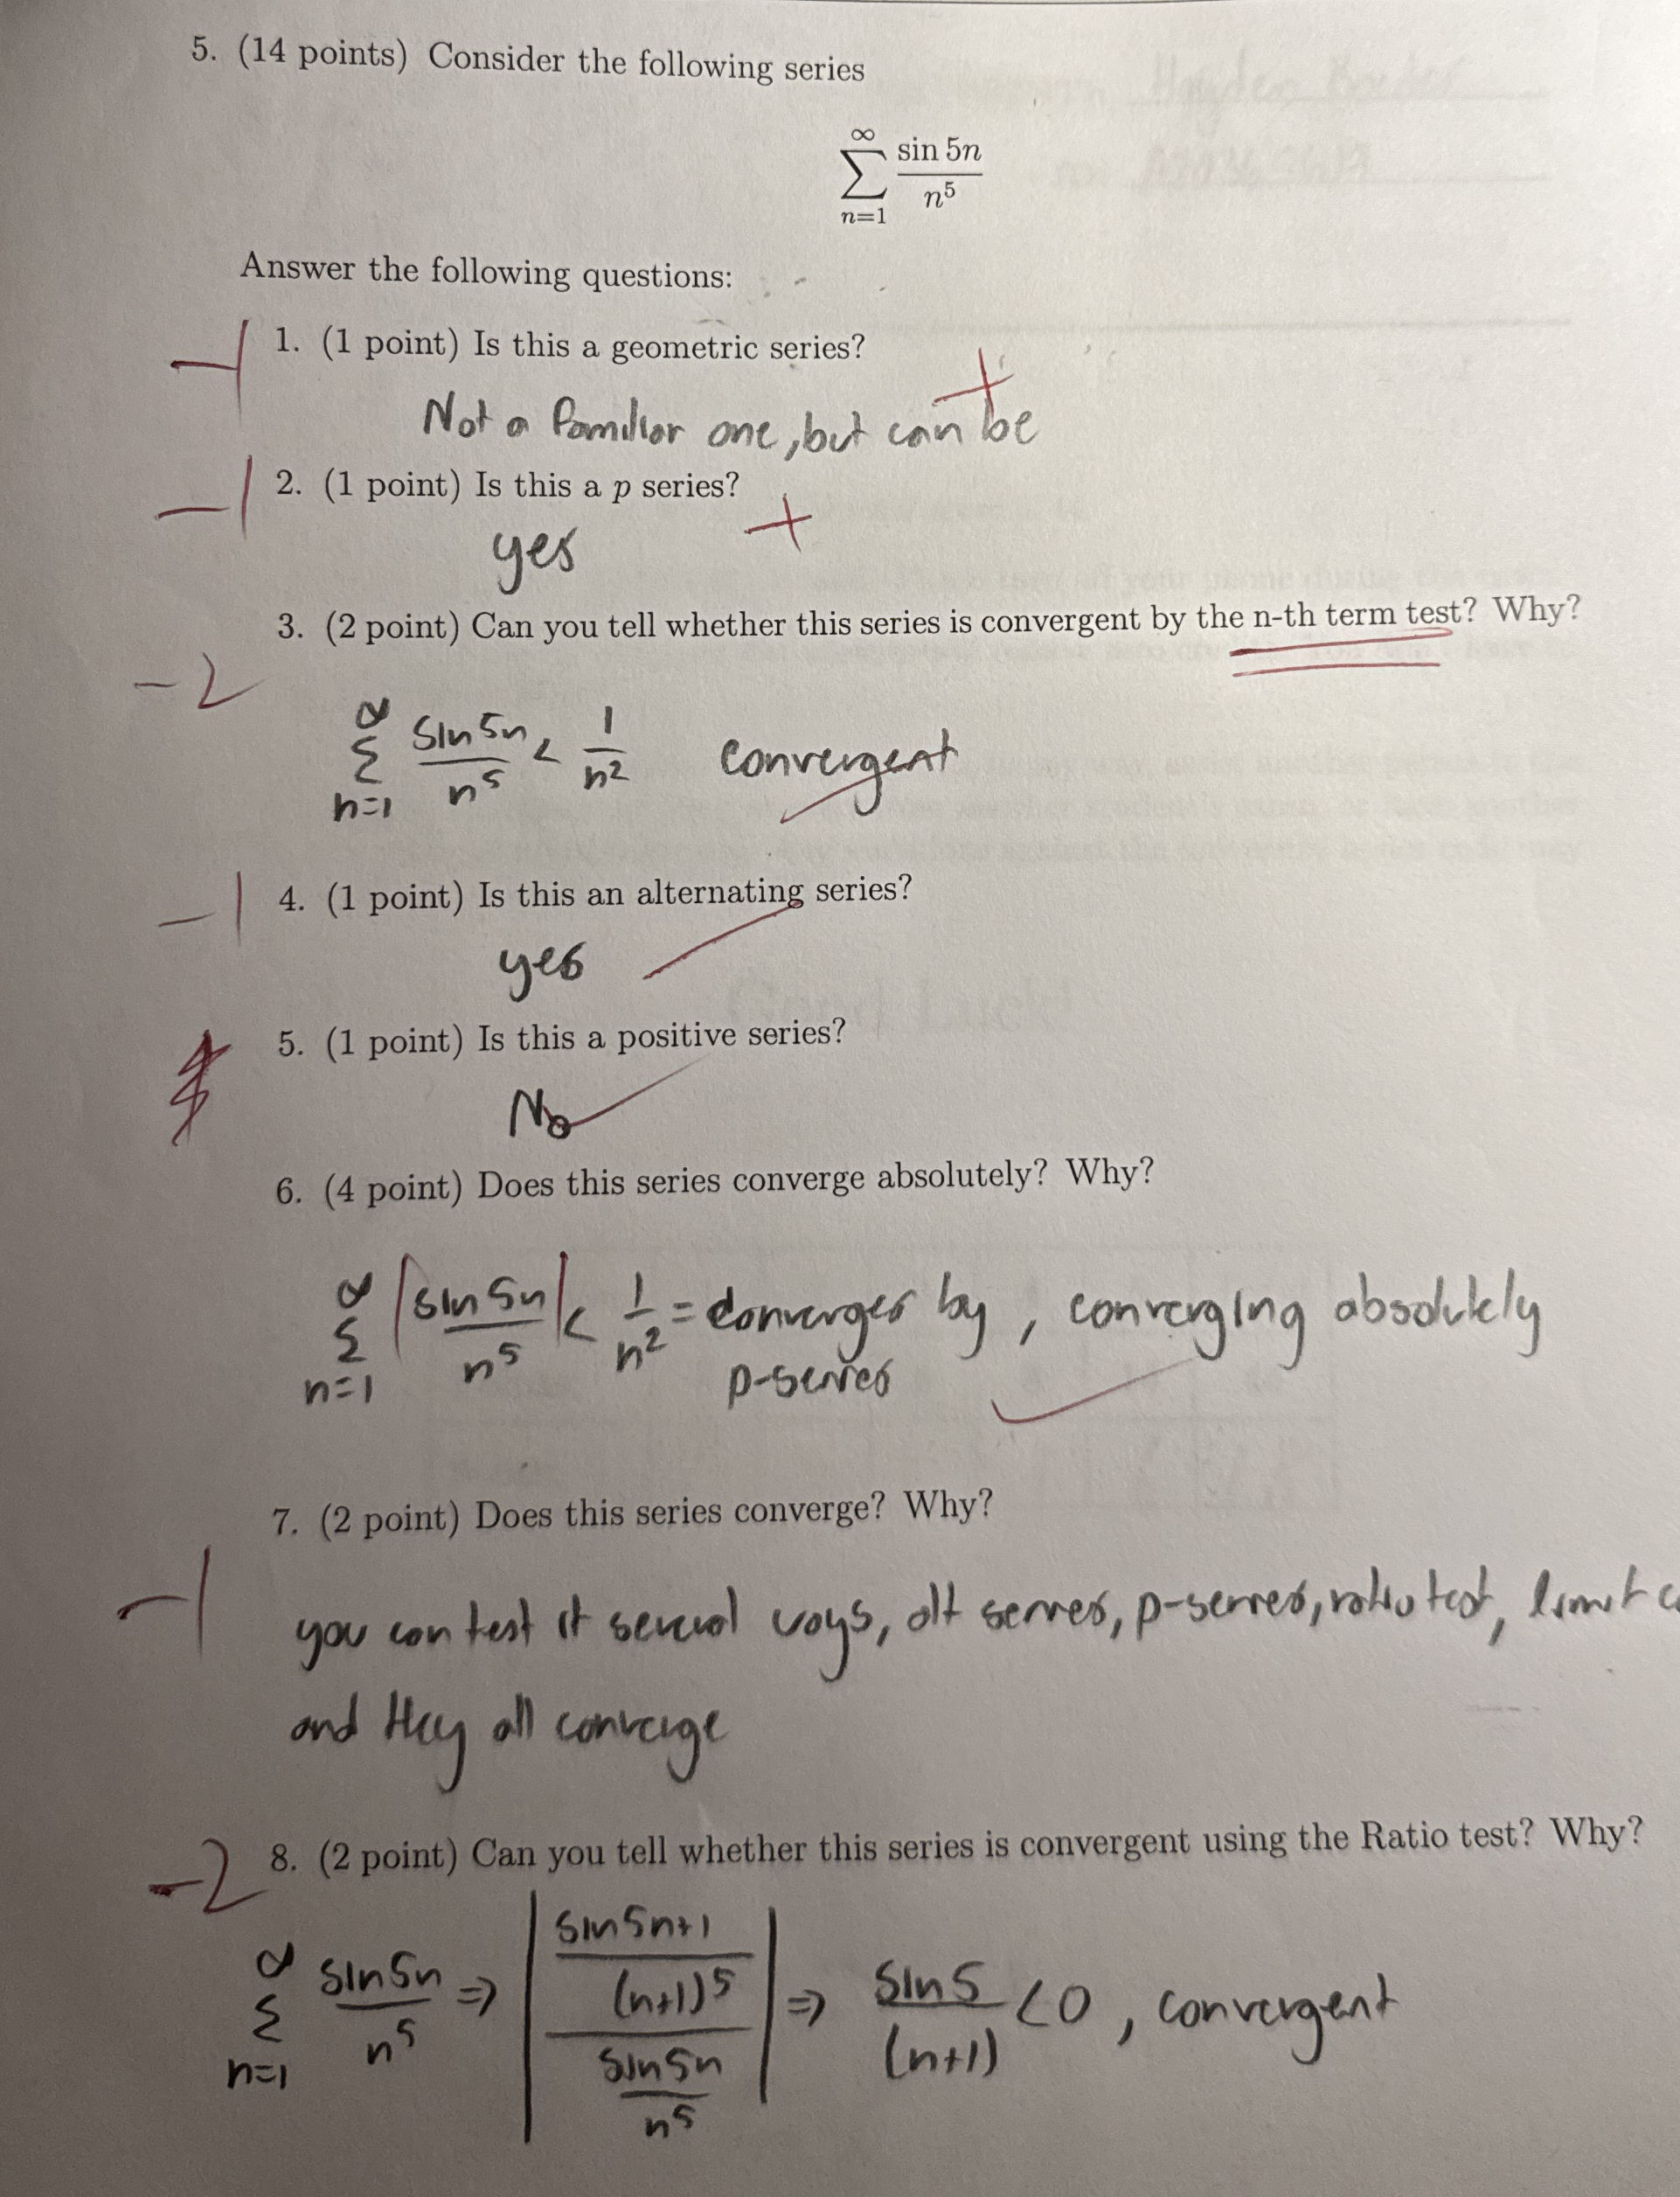 5. (14 points) Consider the following series
∞
∑ sin 5n / n⁵
n=1
Answer the following questions:
-1 1. (1 point) Is this a geometric series?
Not a familiar one, but can be
-1 2. (1 point) Is this a p series?
yes
3. (2 point) Can you tell whether this series is convergent by the n-th term test? Why?
-2
∞
∑ sin 5n / n⁵ < 1 / n² convergent
n=1
-1 4. (1 point) Is this an alternating series?
yes
5. (1 point) Is this a positive series?
No
6. (4 point) Does this series converge absolutely? Why?
∞
∑ | sin 5n / n⁵ | < 1 / n² = converges by , converging absolutely
n=1
p-series
7. (2 point) Does this series converge? Why?
-1
you can test it several ways, alt series, p-series, ratio test, limit
and they all converge
-2 8. (2 point) Can you tell whether this series is convergent using the Ratio test? Why?
∞
∑ sin 5n / n⁵ ⇒ | sin 5n+1 / (n+1)⁵ / sin 5n / n⁵ | ⇒ sin 5 / (n+1) < 0 , convergent
n=1